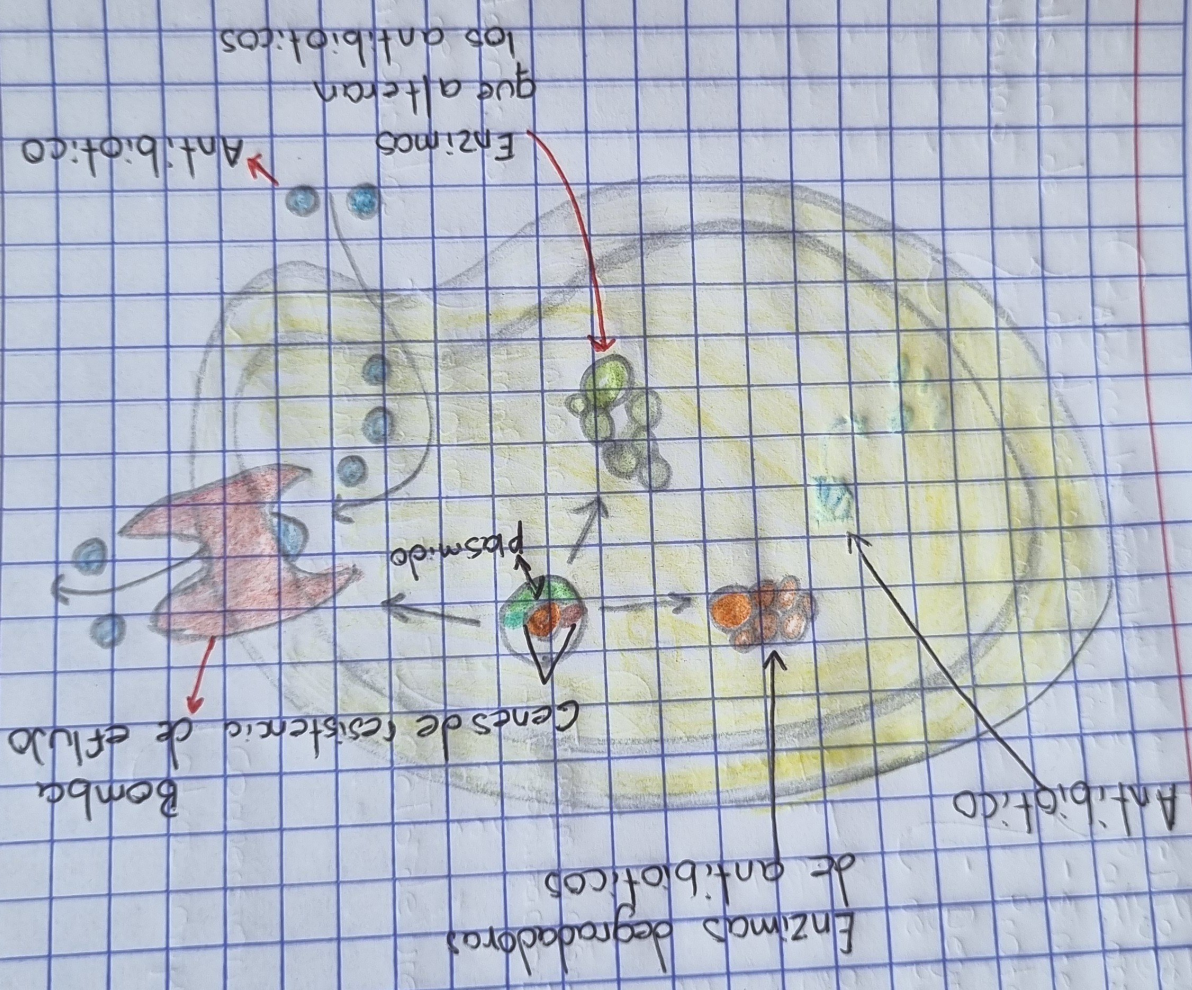 Enzimas degradadoras
de antibióticos
Antibiótico
Bomba
de eflujo
Genes de resistencia
plasmido
Antibiótico
Enzimas
que alteran
los antibióticos